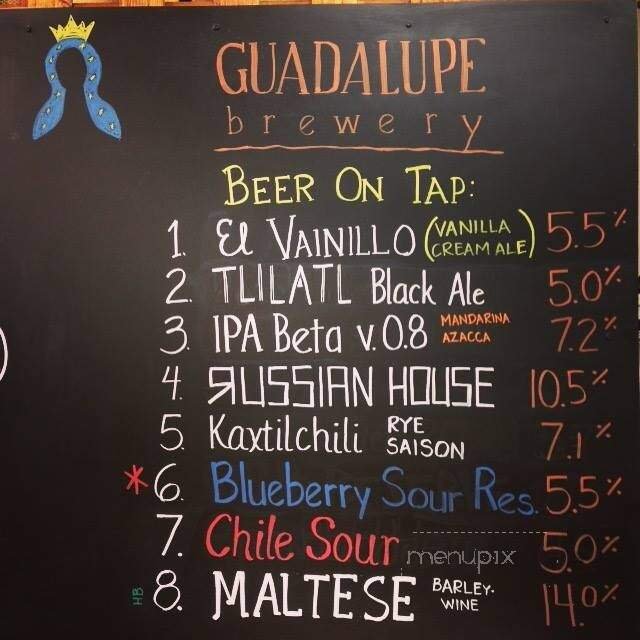 GUADALUPE
brewery
BEER ON TAP:
1. El VAINILLO (VANILLA CREAM ALE) 5.5%
2. TLILATL Black Ale 5.0%
3. IPA Beta v.0.8 MANDARINA AZACCA 7.2%
4. ЯUSSIAN HOUSE 10.5%
5. Kaxtilchili RYE SAISON 7.1%
*6. Blueberry Sour Res. 5.5%
7. Chile Sour 5.0%
menupix
HB 8. MALTESE BARLEY-WINE 14.0%